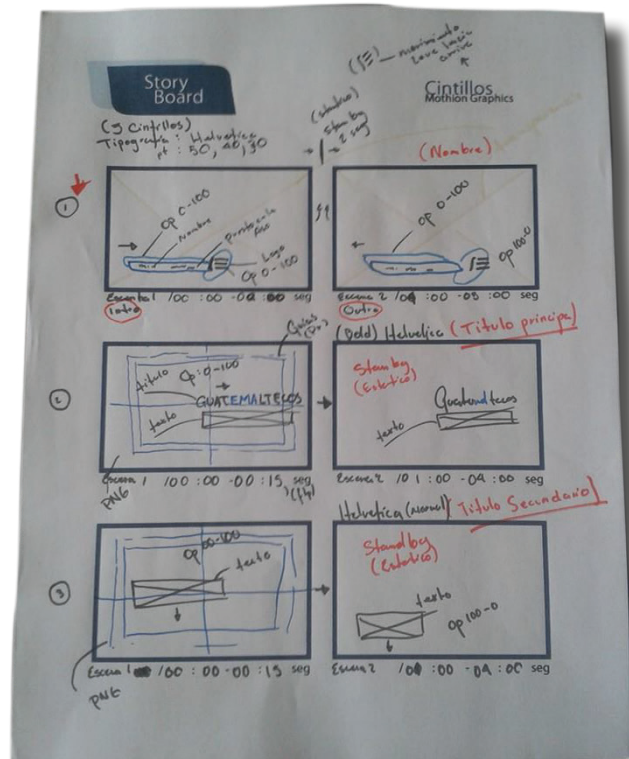 (≡) — movimiento
leve hacia
arriva
Story
Board
Cintillos
Mothion Graphics
(3 Cintillos)
Tipografía: Helvetica
pt: 50, 40, 30
(estatico)
Stanby
2 seg
(Nombre)
1
Op 0-100
Nombre
Logo
Op 0-100
Op 0-100
Op 100-0
Escena 1 /00 :00 -02 :00 seg
Intro
Escena 2 /04 :00 -05 :00 seg
Outro
Guias
(Bold) Helvetica (Titulo principal)
2
titulo
Op: 0-100
GUATEMALTECOS
texto
Stamby
(Estatico)
Guatemaltecos
texto
Escena 1 /00 :00 -00 :15 seg
PNG
Escena 2 /01 :00 -04 :00 seg
Helvetica (normal) (Titulo Secundario)
3
Op 00-100
texto
Standby
(Estatico)
texto
Op 100-0
Escena 1 /00 :00 -00 :15 seg
PNG
Escena 2 /04 :00 -04 :00 seg